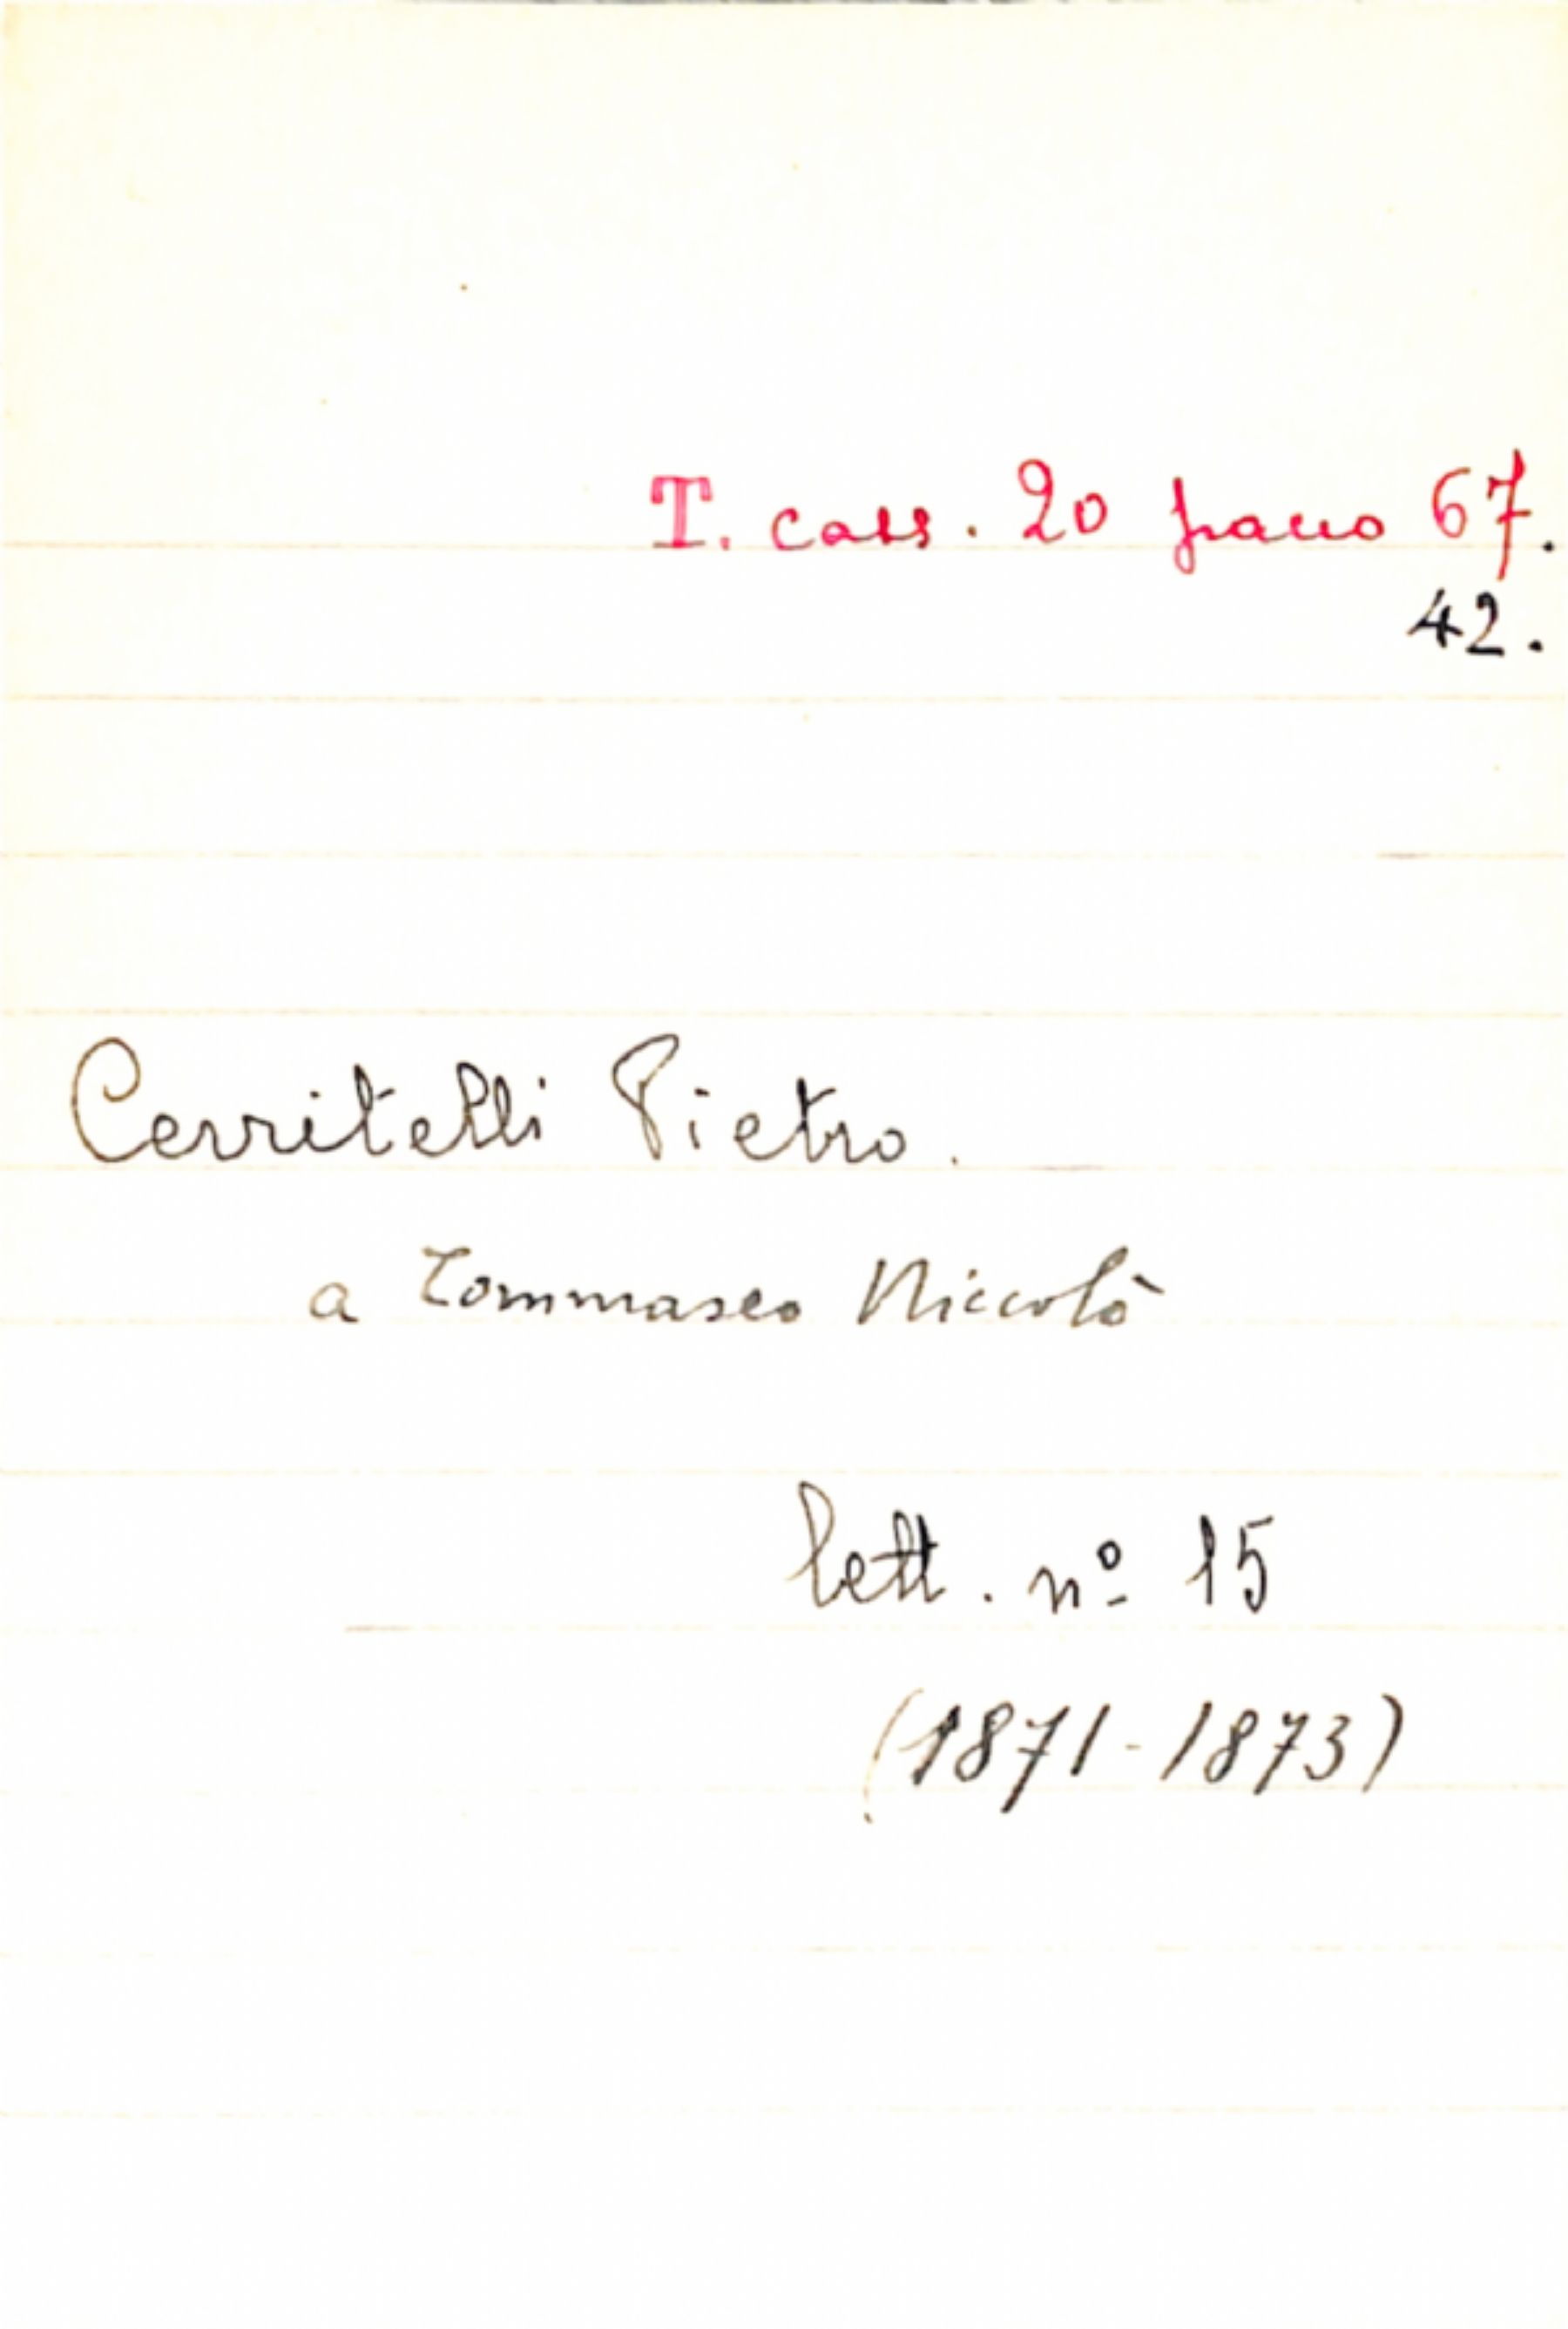 T. cass. 20 pacco 67.
42.
Cerritelli Pietro.
a Tommaseo Niccolò
lett. nº 15
(1871-1873)